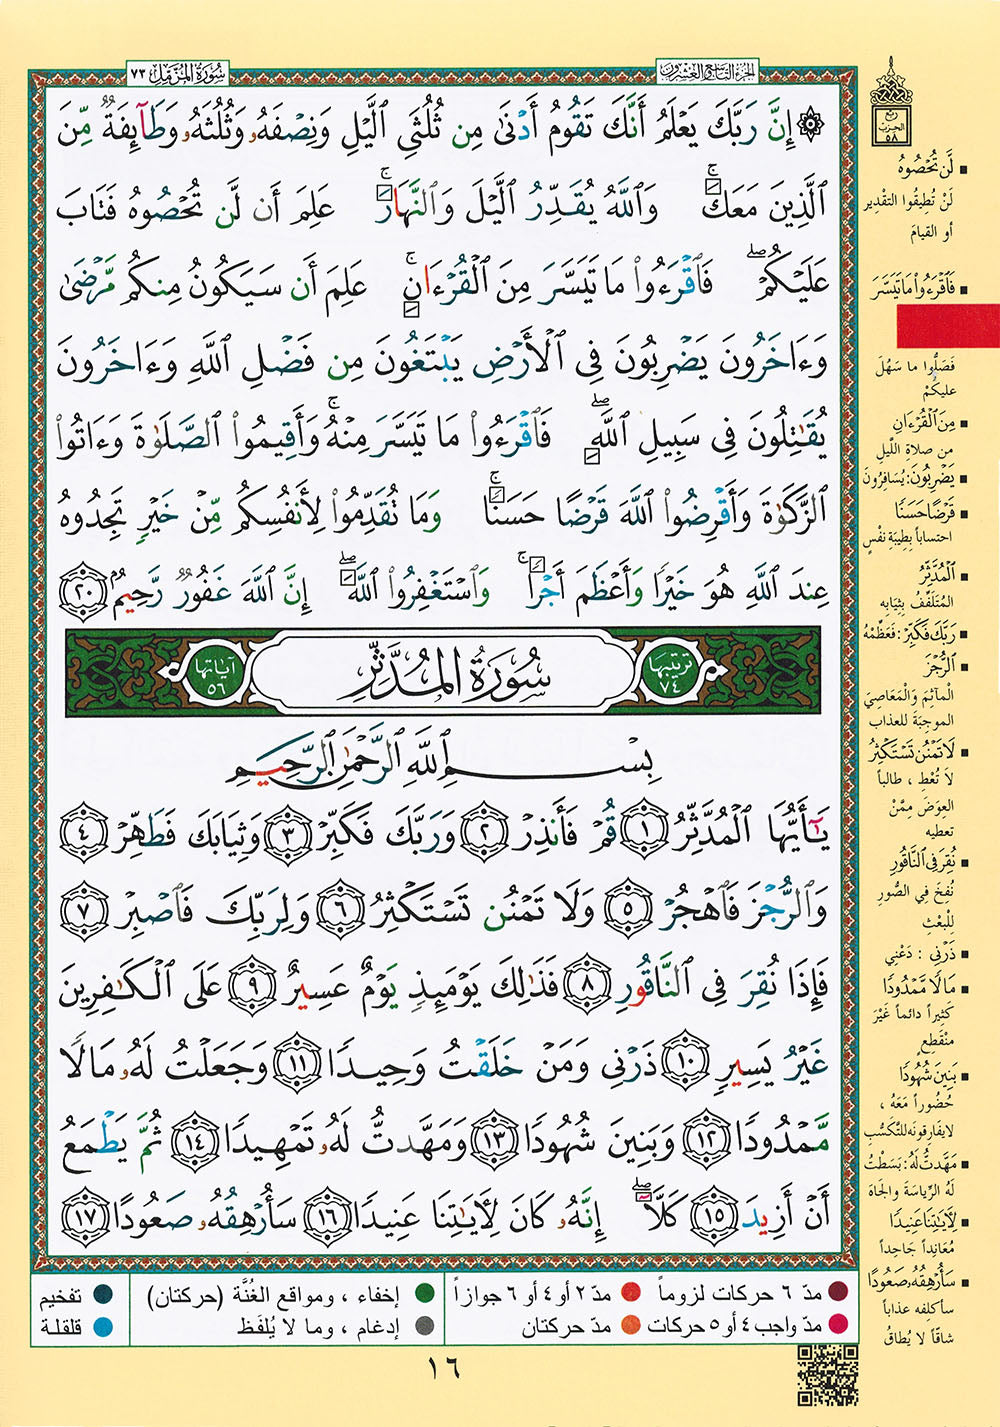 الجزء التاسع والعشرون
سُورَةُ المُزَّمِّل ٧٣
۞ إِنَّ رَبَّكَ يَعْلَمُ أَنَّكَ تَقُومُ أَدْنَىٰ مِن ثُلُثَىِ الَّيْلِ وَنِصْفَهُۥ وَثُلُثَهُۥ وَطَآئِفَةٌ مِّنَ
الَّذِينَ مَعَكَ ۚ وَاللَّهُ يُقَدِّرُ الَّيْلَ وَالنَّهَارَ ۚ عَلِمَ أَن لَّن تُحْصُوهُ فَتَابَ
عَلَيْكُمْ ۖ فَاقْرَءُوا۟ مَا تَيَسَّرَ مِنَ الْقُرْءَانِ ۚ عَلِمَ أَن سَيَكُونُ مِنكُم مَّرْضَىٰ
وَءَاخَرُونَ يَضْرِبُونَ فِى الْأَرْضِ يَبْتَغُونَ مِن فَضْلِ اللَّهِ وَءَاخَرُونَ
يُقَـٰتِلُونَ فِى سَبِيلِ اللَّهِ ۖ فَاقْرَءُوا۟ مَا تَيَسَّرَ مِنْهُ ۚ وَأَقِيمُوا۟ الصَّلَوٰةَ وَءَاتُوا۟
الزَّكَوٰةَ وَأَقْرِضُوا۟ اللَّهَ قَرْضًا حَسَنًا ۚ وَمَا تُقَدِّمُوا۟ لِأَنفُسِكُم مِّنْ خَيْرٍ تَجِدُوهُ
عِندَ اللَّهِ هُوَ خَيْرًا وَأَعْظَمَ أَجْرًا ۚ وَاسْتَغْفِرُوا۟ اللَّهَ ۖ إِنَّ اللَّهَ غَفُورٌ رَّحِيمٌ ٢٠
ترتيبها ٧٤
سُورَةُ المُدَّثِّر
آياتها ٥٦
بِسْمِ اللَّهِ الرَّحْمَـٰنِ الرَّحِيمِ
يَـٰٓأَيُّهَا الْمُدَّثِّرُ ١ قُمْ فَأَنذِرْ ٢ وَرَبَّكَ فَكَبِّرْ ٣ وَثِيَابَكَ فَطَهِّرْ ٤
وَالرُّجْزَ فَاهْجُرْ ٥ وَلَا تَمْنُن تَسْتَكْثِرُ ٦ وَلِرَبِّكَ فَاصْبِرْ ٧
فَإِذَا نُقِرَ فِى النَّاقُورِ ٨ فَذَٰلِكَ يَوْمَئِذٍ يَوْمٌ عَسِيرٌ ٩ عَلَى الْكَـٰفِرِينَ
غَيْرُ يَسِيرٍ ١٠ ذَرْنِى وَمَنْ خَلَقْتُ وَحِيدًا ١١ وَجَعَلْتُ لَهُۥ مَالًا
مَّمْدُودًا ١٢ وَبَنِينَ شُهُودًا ١٣ وَمَهَّدتُّ لَهُۥ تَمْهِيدًا ١٤ ثُمَّ يَطْمَعُ
أَنْ أَزِيدَ ١٥ كَلَّا ۖ إِنَّهُۥ كَانَ لِـَٔايَـٰتِنَا عَنِيدًا ١٦ سَأُرْهِقُهُۥ صَعُودًا ١٧
ربع
الحزب
٥٨
▪ لَّن تُحْصُوهُ
لَنْ تُطِيقُوا التقْدِير
أو القيامَ
▪ فَاقْرَءُوا۟ مَا تَيَسَّرَ
فَصَلُّوا ما سَهُلَ
عليكُمْ
▪ مِنَ الْقُرْءَانِ
من صلاةِ اللّيلِ
▪ يَضْرِبُونَ: يُسَافِرُونَ
▪ قَرْضًا حَسَنًا
احتساباً بِطِيبَةِ نفْسٍ
▪ الْمُدَّثِّرُ
المُتَلَفِّفُ بِثِيَابِه
▪ رَبَّكَ فَكَبِّرْ: فَعَظِّمْهُ
▪ الرُّجْزَ
الْمآثِمَ وَالْمَعَاصِيَ
الموجبَةَ للعذاب
▪ لَا تَمْنُن تَسْتَكْثِرُ
لا تُعْطِ ، طالباً
العِوَضَ مِمَّنْ
تعطيه
▪ نُقِرَ فِى النَّاقُورِ
نُفِخَ فِي الصُّورِ
لِلْبَعْثِ
▪ ذَرْنِى : دَعْنِي
▪ مَالًا مَّمْدُودًا
كَثِيراً دائماً غَيْرَ
منْقَطِعٍ
▪ بَنِينَ شُهُودًا
حُضُوراً مَعَهُ ،
لا يفارِقونَه للتَّكَسُّبِ
▪ مَهَّدتُّ لَهُ: بَسَطْتُ
لَهُ الرِّيَاسَةَ والجَاهَ
▪ لِـَٔايَـٰتِنَا عَنِيدًا
مُعَانِداً جَاحِداً
▪ سَأُرْهِقُهُۥ صَعُودًا
سأكلِفه عذاباً
شاقّاً لا يُطاقُ
مدّ ٦ حركات لزوماً
مدّ ٢ أو ٤ أو ٦ جوازاً
إخفاء ، ومواقع الغُنَّة (حركتان)
تفخيم
مدّ واجب ٤ أو ٥ حركات
مدّ حركتان
إدغام ، وما لا يُلفَظ
قلقلة
١٦